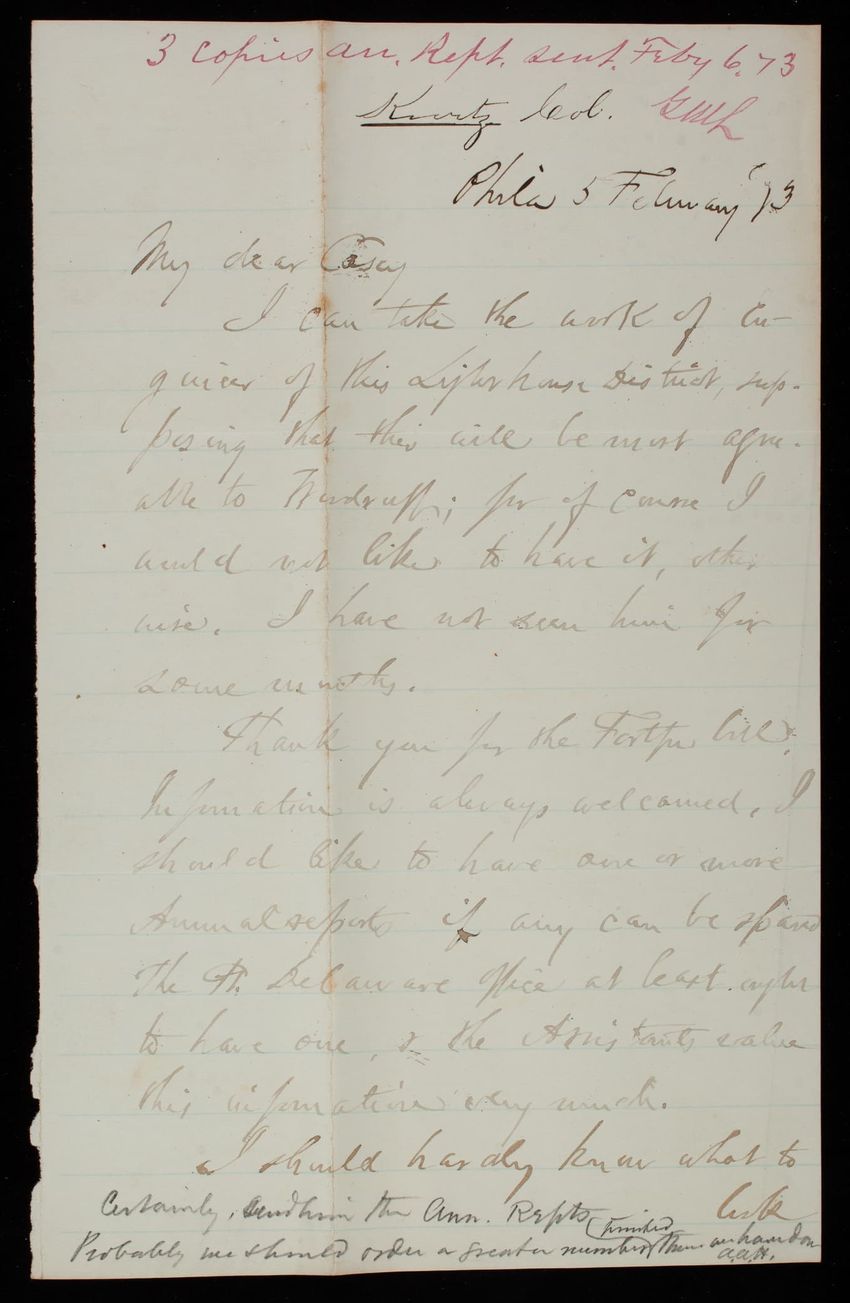 3 copies an. Rept. sent. Feby 6. 73
Kurtz Col. GWL
Phila 5 February '73
My dear Casey
I can take the work of En-
gineer of this Lighthouse District, sup-
posing that this will be most agree-
able to Woodruff; for of course I
would not like to have it, other
wise. I have not seen him for
some months.
Thank you for the Fortfn bill.
Information is always welcomed. I
should like to have one or more
Annual reports if any can be spared
The Ft. Delaware office at least ought
to have one, & the Assistants value
this information very much.
I should hardly know what to
ask
Certainly, send him the Ann. Repts
Probably we should order a greater number printed than on hand
A.A.H.